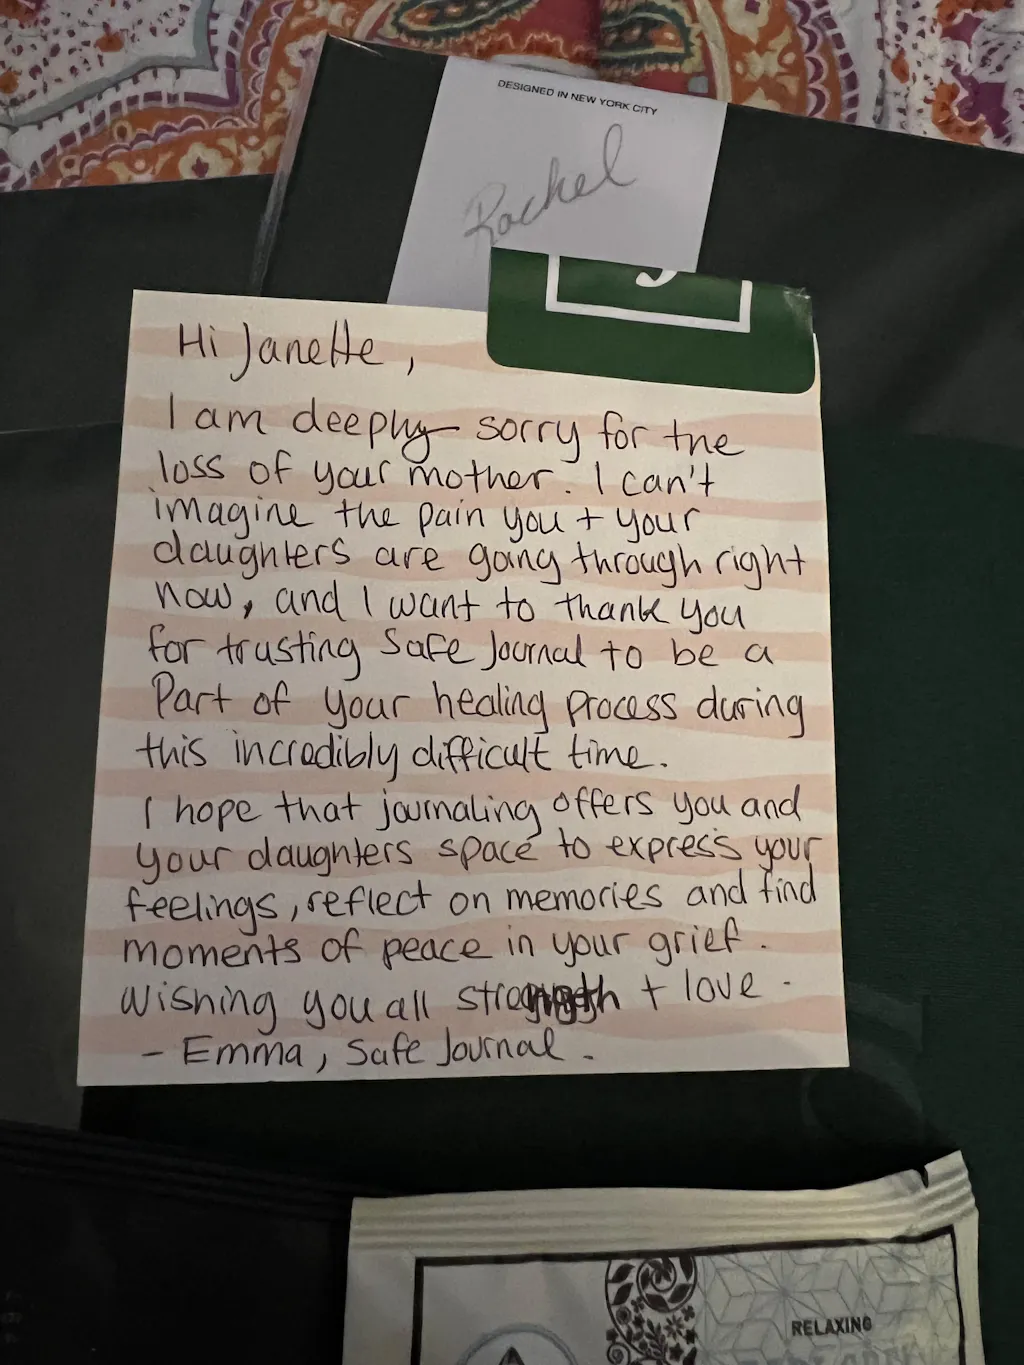 DESIGNED IN NEW YORK CITY
Rachel
Hi Janette,
I am deeply sorry for the
loss of your mother. I can't
imagine the pain you + your
daughters are going through right
now, and I want to thank you
for trusting Safe Journal to be a
Part of your healing process during
this incredibly difficult time.
I hope that journaling offers you and
your daughters space to express your
feelings, reflect on memories and find
moments of peace in your grief.
Wishing you all strength + love.
- Emma, Safe Journal.
RELAXING